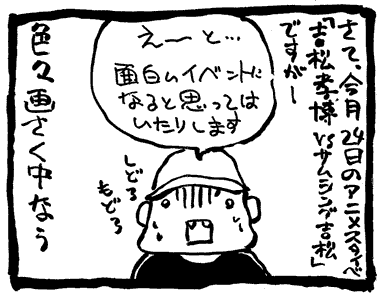 さて、今月24日のアニメスタイベ
「吉松孝博vsサムシング吉松」
ですがー
えーと…
面白いイベントに
なると思っては
いたりします
しどろ
もどろ
色々画さく中なう